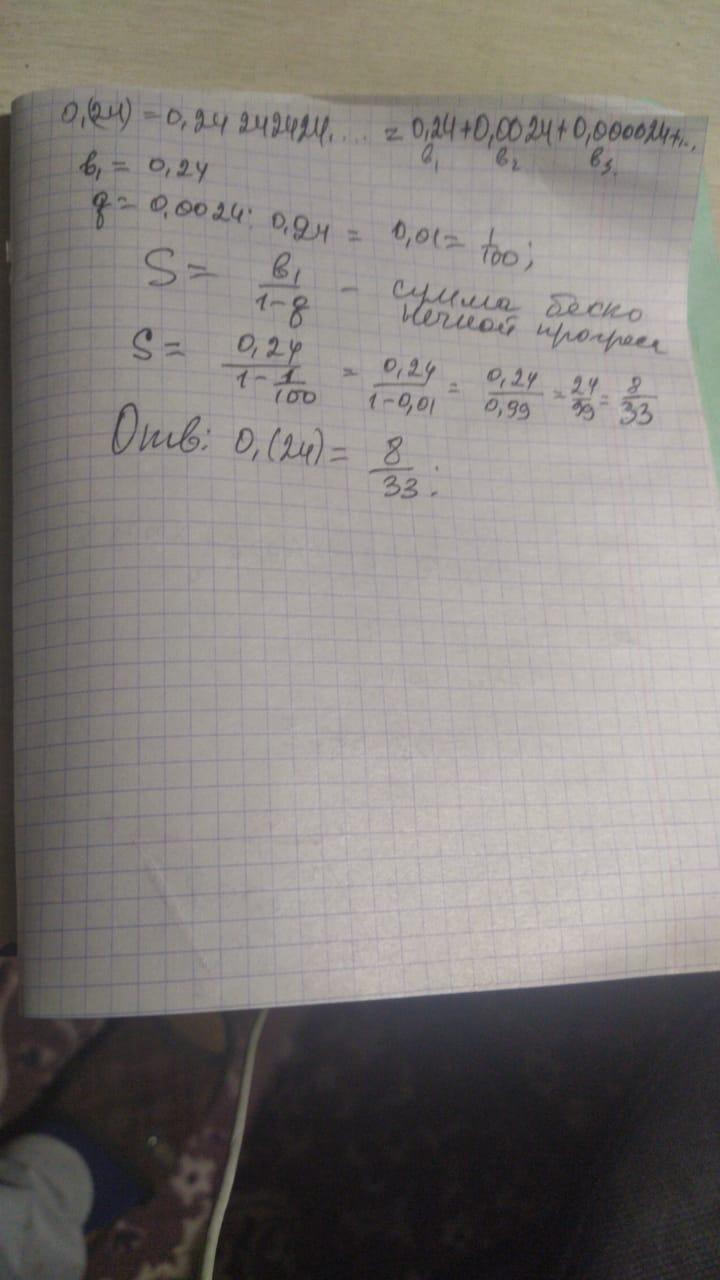 0,(24) = 0,24 242424.... = 0,24+0,0024+0,000024+...
в₁ в₂ в₃.
в₁ = 0,24
q = 0,0024 : 0,24 = 0,01 = 1/100;
S = в₁/(1-q) - сумма беско
нечной прогресс
S = 0,24/(1-1/100) = 0,24/(1-0,01) = 0,24/0,99 = 24/99 = 8/33
Отв: 0,(24) = 8/33;